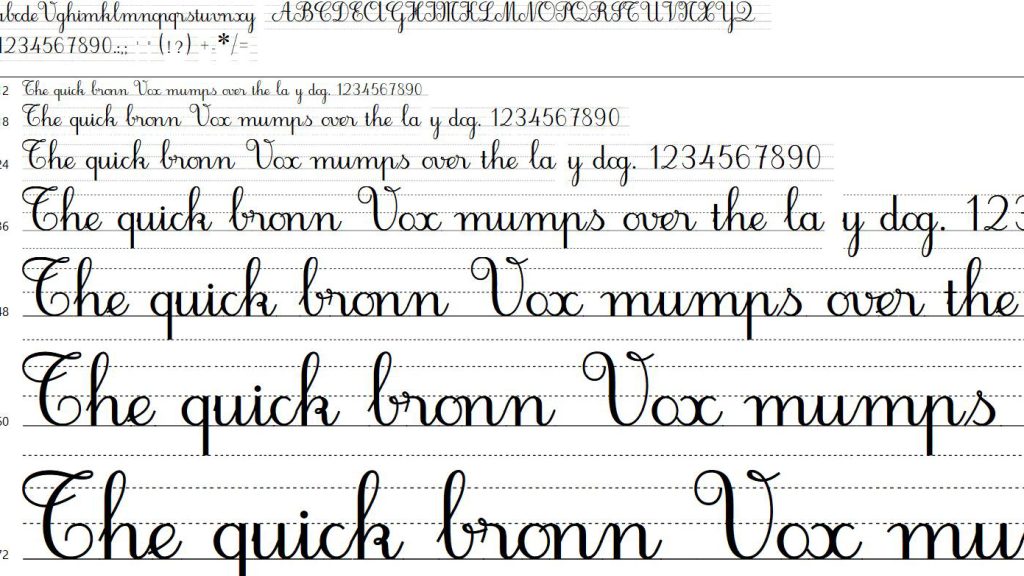 abcdeVghimklmnqpqrsturnxy ABCDEAGHIMKLMNOPQRSTUVNXYZ
1234567890.:,; ' " (!?) +-*/=
12 The quick bronn Vox mumps over the la y dog. 1234567890
18 The quick bronn Vox mumps over the la y dog. 1234567890
24 The quick bronn Vox mumps over the la y dog. 1234567890
36 The quick bronn Vox mumps over the la y dog. 123
48 The quick bronn Vox mumps over the
60 The quick bronn Vox mumps
72 The quick bronn Vox mu